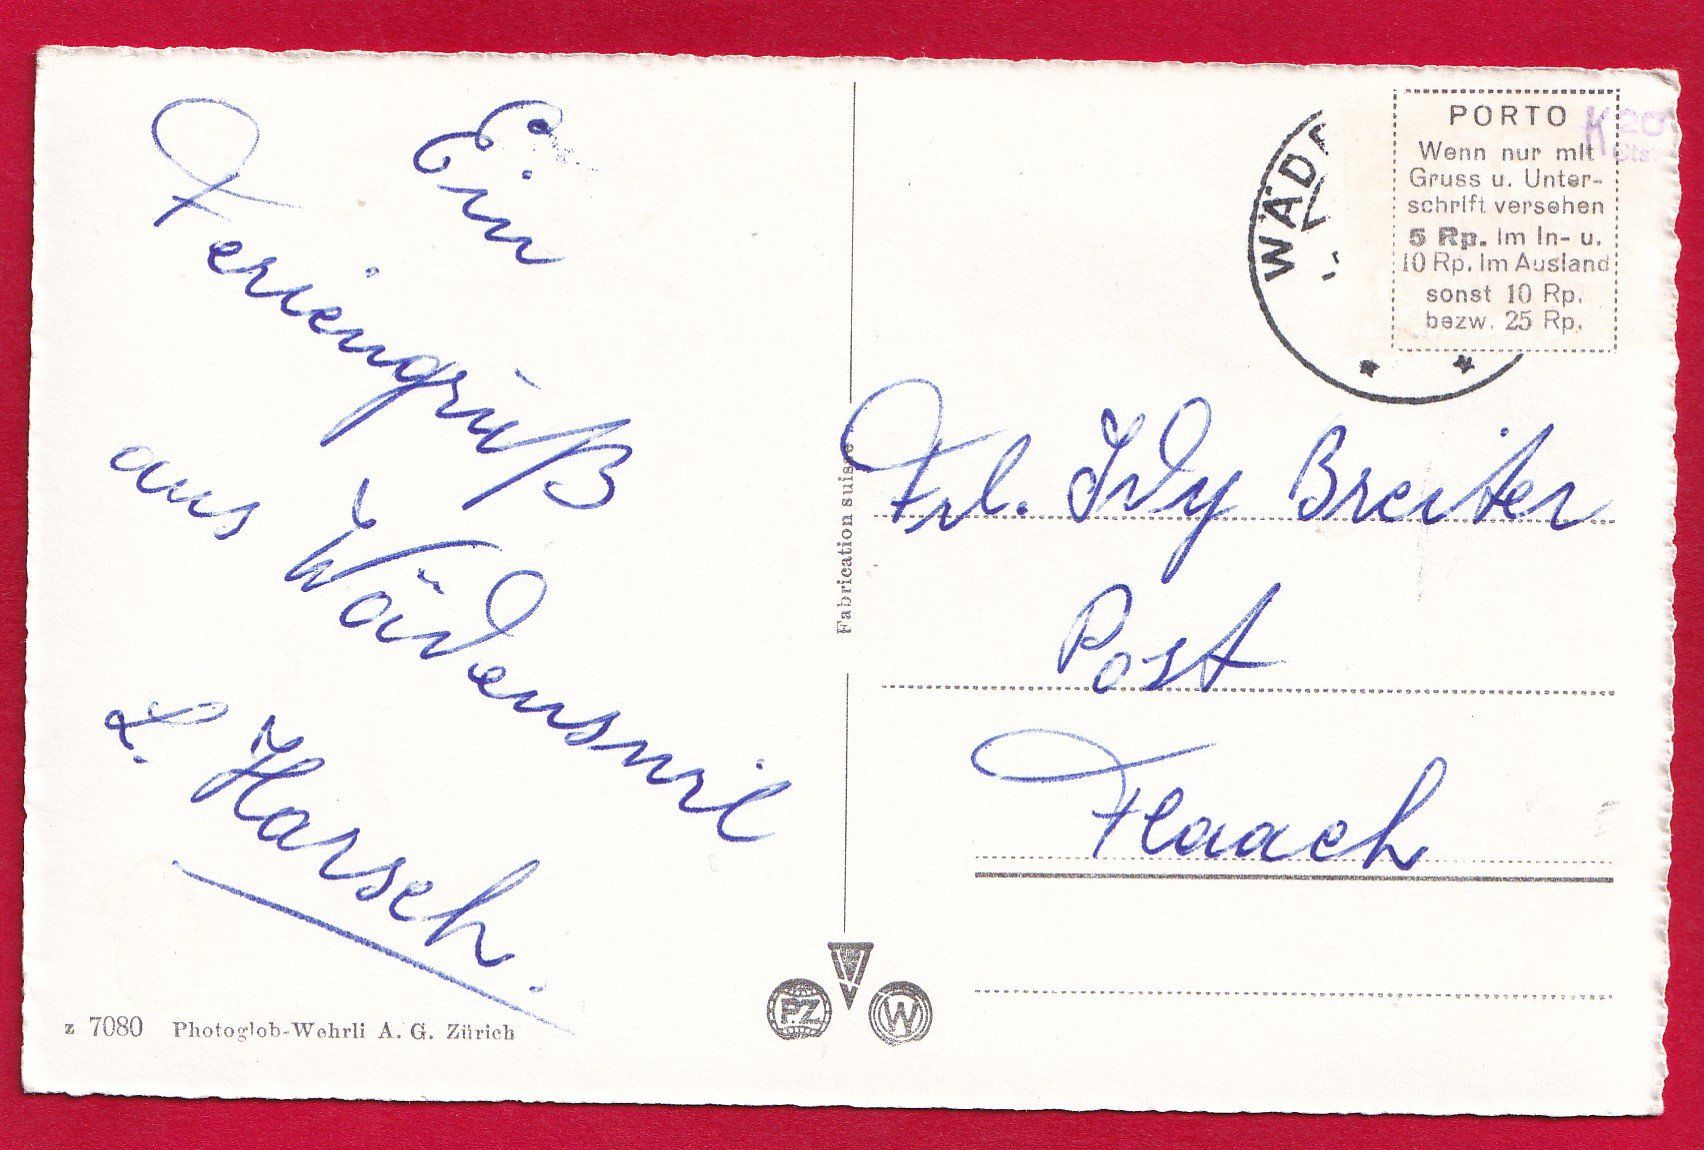 Ein
Feriengruß
aus Wädenswil
L. Harsch.
z 7080 Photoglob-Wehrli A. G. Zürich
Fabrication suisse
PZ
W
WÄD
PORTO
Wenn nur mit
Gruss u. Unter-
schrift versehen
5 Rp. im In- u.
10 Rp. im Ausland
sonst 10 Rp.
bezw. 25 Rp.
K 20
Cts.
Frl. Idy Breiter
Post
Flaach